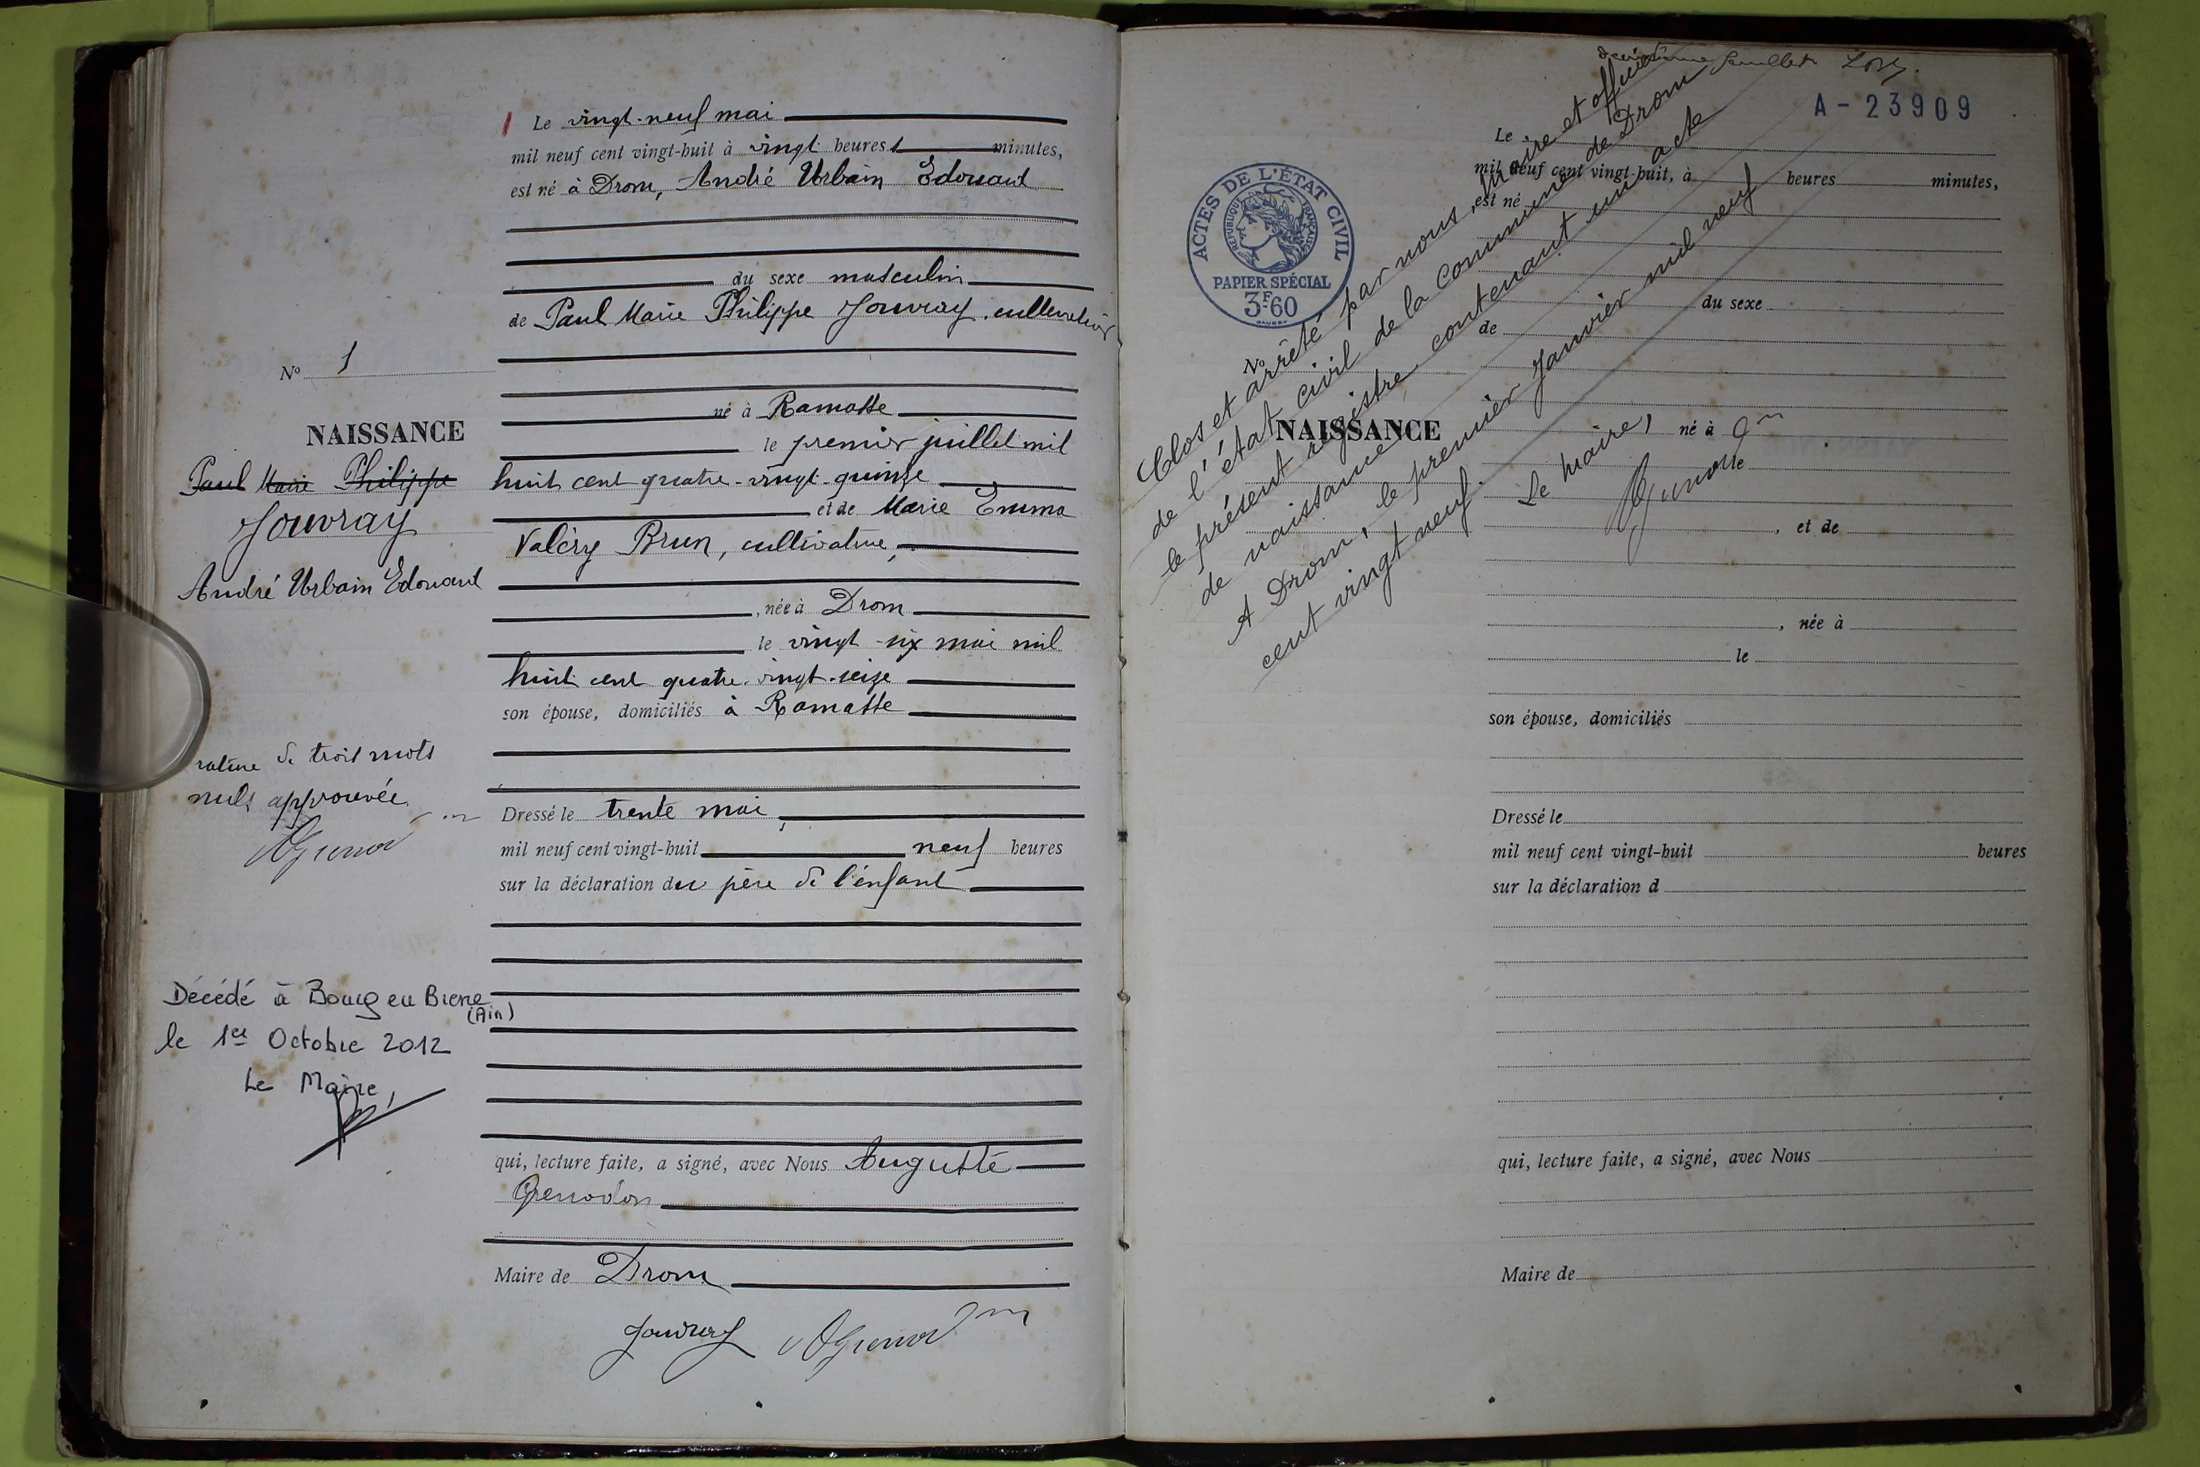 Le vingt-neuf mai
mil neuf cent vingt-huit à vingt heures minutes,
est né à Drom, André Urbain Edouard
du sexe masculin
de Paul Marie Philippe Jouvray, cultivateur
né à Ramasse
le premier juillet mil
huit cent quatre-vingt-quinze
et de Marie Emma
Valéry Brun, cultivatrice,
, née à Drom
le vingt-six mai mil
huit cent quatre-vingt-seize
son épouse, domiciliés à Ramasse
Dressé le trente mai,
mil neuf cent vingt-huit neuf heures
sur la déclaration du père de l'enfant
qui, lecture faite, a signé, avec Nous Auguste
Grenodon
Maire de Drom
Jouvray
N° 1
NAISSANCE
Paul Marie Philippe
Jouvray
André Urbain Edouard
rature de trois mots
nuls approuvée
Décédé à Bourg en Bresse
(Ain)
le 1er Octobre 2012
Le Maire,
feuillet
A-23909
ACTES DE L'ÉTAT CIVIL
RÉPUBLIQUE FRANÇAISE
PAPIER SPÉCIAL
3F.60
Clos et arrêté par nous, maire et officier
de l'état civil de la commune de Drom
le présent registre contenant un acte
de naissance
A Drom, le premier Janvier mil neuf
cent vingt neuf.
Le Maire,
Le
mil neuf cent vingt-huit, à heures minutes,
est né
du sexe
de
N°
NAISSANCE
né à
le
, et de
, née à
le
son épouse, domiciliés
Dressé le
mil neuf cent vingt-huit heures
sur la déclaration d
qui, lecture faite, a signé, avec Nous
Maire de